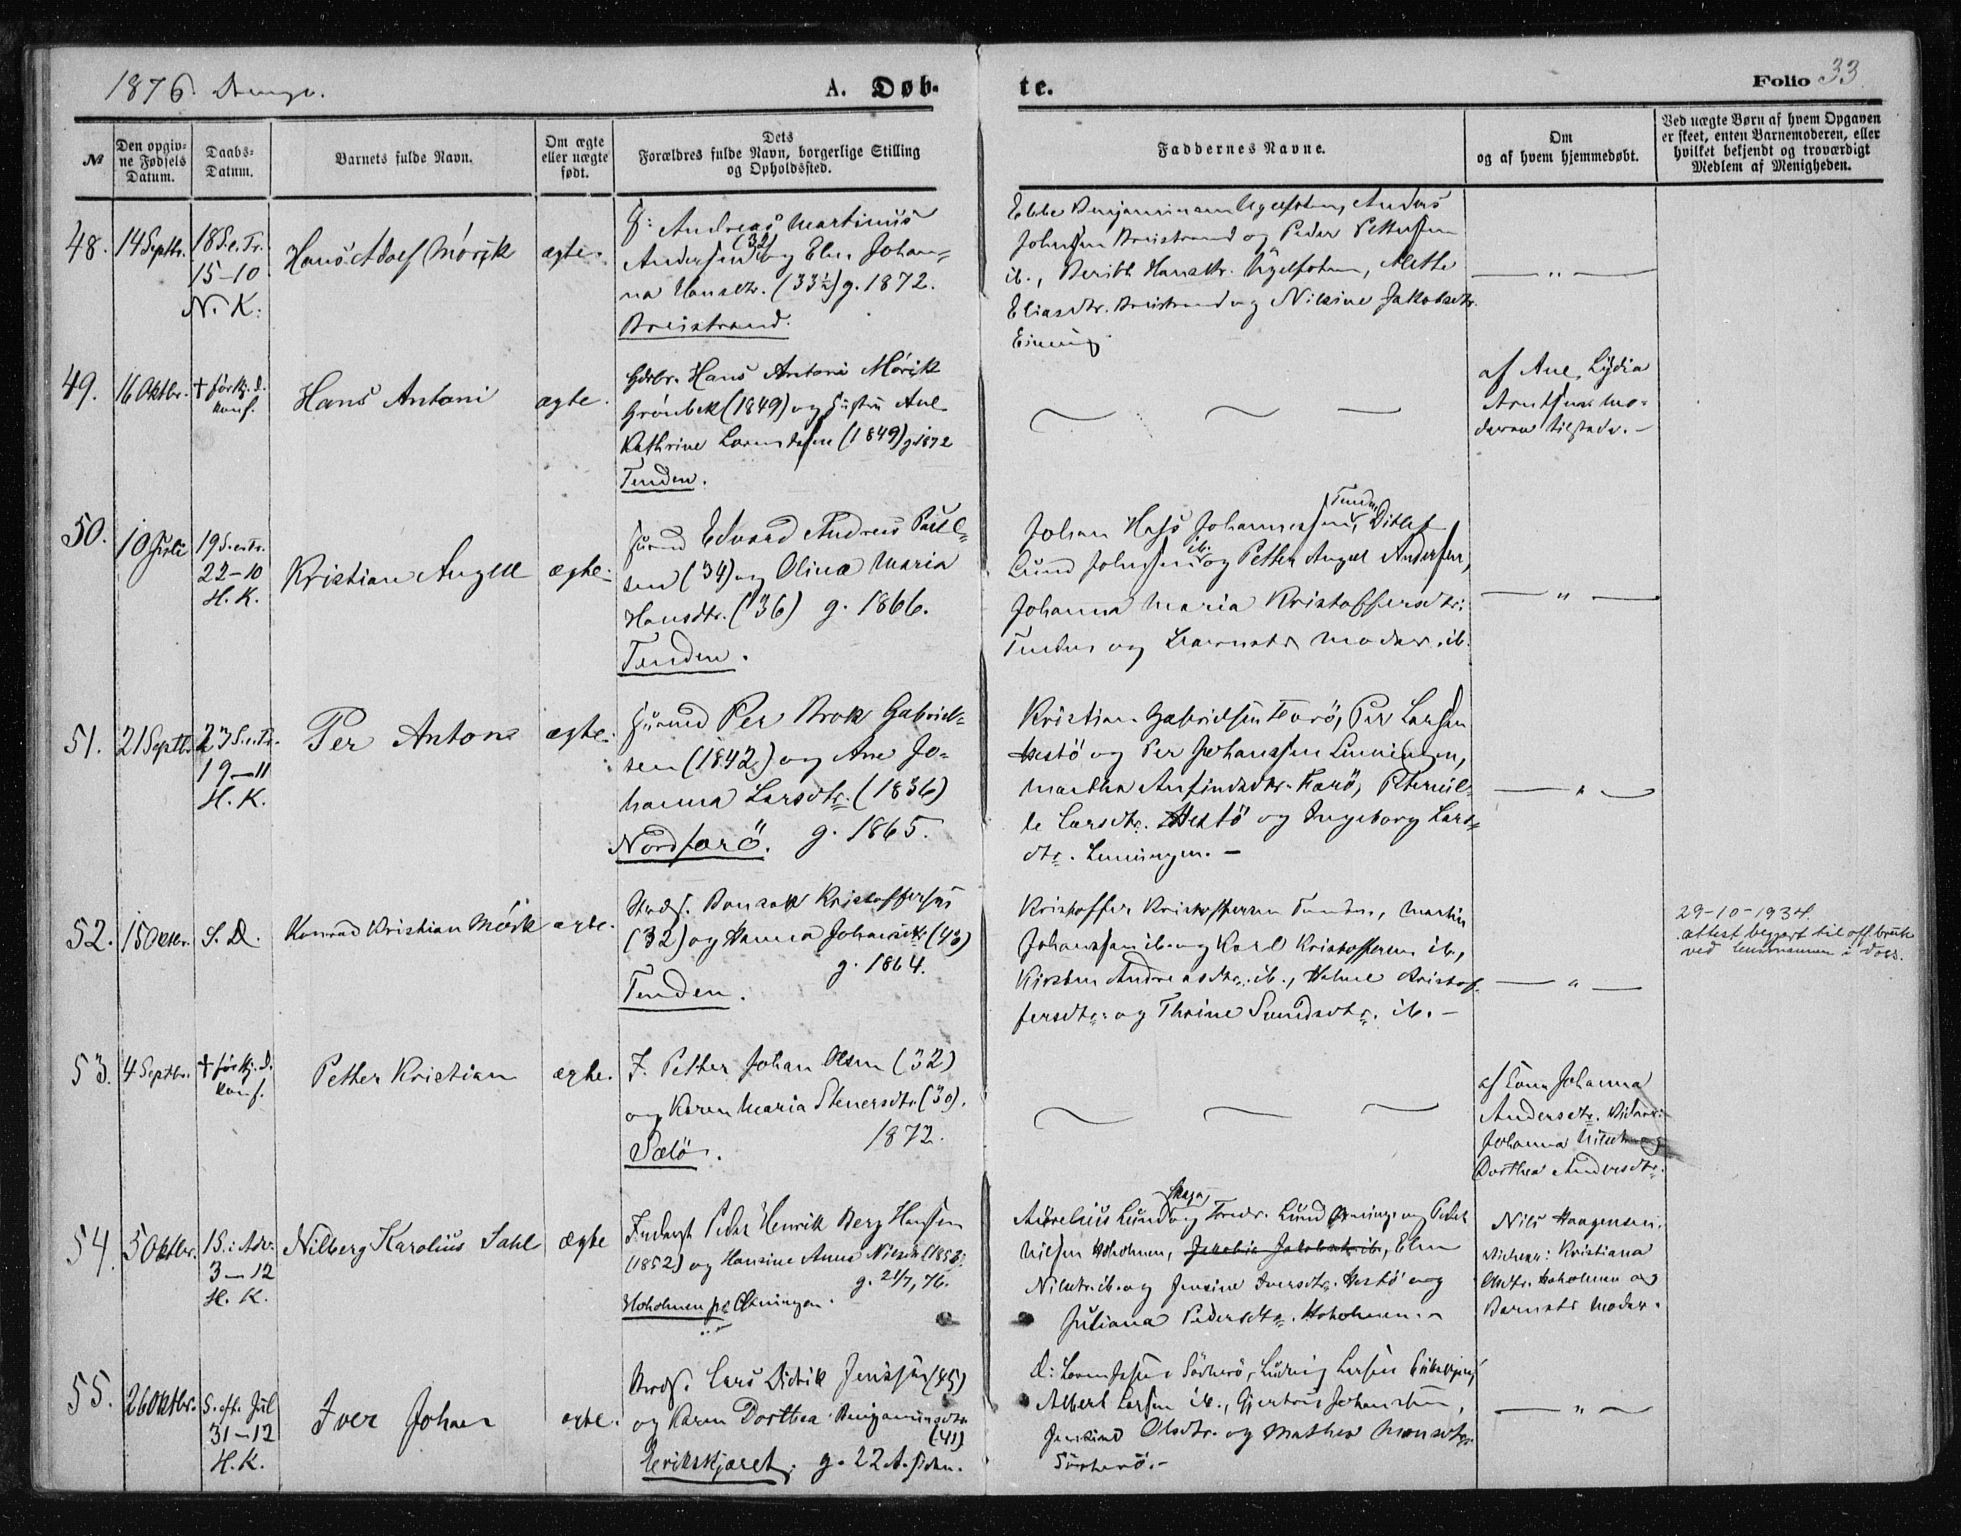 1876. Drenge.
A. Døb-
te.
Folio 33
№
Den opgiv-
ne Fødsels
Datum.
Daabs-
Datum.
Barnets fulde Navn.
Om ægte
eller uægte
født.
Dets
Forældres fulde Navn, borgerlige Stilling
og Opholdssted.
Faddernes Navne.
Om
og af hvem hjemmedøbt.
Ved uægte Børn af hvem Opgaven
er skeet, enten Barnemoderen, eller
hvilket bekjendt og troværdigt
Medlem af Menigheden.
48.
14 Septbr.
18 S. e. Tr.
15-10
N. K.
Hans Adolf Mörik
ægte.
Andreas Martinus
Andersen (32) og Elen Johan-
na Hansdtr. (33½) g. 1872.
Breistrand.
Ebbe Benjaminsen Anders
Johnsen Breistrand og Peder Pettersen
ib., Berith Hansdtr. Mette
Eliasdtr. Breistrand og Nilsine Jakobsdtr.
— " —
49.
16 Oktbr.
† før kj. d.
konf.
Hans Antoni
ægte.
Gdbr. Hans Antoni Mörik
Grönbek (1849) og Hustru Ane
Kathrine Lorentsdatter (1849) g. 1872
Tenden.
af Ane Lydia
Arntsen Mo-
deren tilstede. —
50.
10 Juli
19 S. e. Tr.
22-10
H. K.
Kristian Angell
ægte.
Husmd Edvard Andreas Paul-
sen (34) og Olina Maria
Hansdtr. (36) g. 1866.
Tenden.
Johan Hass Johannessen, Tenden, Ditlef
Lund Johnsen ib. og Petter Angel Andersen,
Johanna Maria Kristoffersdtr.
Tenden og Barnets Moder ib.
— " —
51.
21 Septb.
23 S. e. Tr.
19-11
H. K.
Per Anton
ægte.
Husmd Per Brok Gabriel-
sen (1842) og Ane Jo-
hanna Larsdtr. (1836)
Nordfarö. g. 1865.
Kristian Gabrielsen Farö, Per Larsen
Hestö og Per Johanssen Lenningen,
Martha Arfindsdtr. Farö, Peternil-
le Larsdtr. Hestö og Ingeborg Lars-
dtr. Lenningen. —
— " —
52.
15 Oktbr.
S. D.
Konrad Kristian Mörk
ægte.
Strds. Bonsak Kristoffersen
(32) og Hanna Johansdtr. (43)
g. 1864.
Tenden.
Kristoffer Kristoffersen Tenden, Martin
Johanssen ib. og Karl Kristoffersen ib.,
Kirsten Andreasdtr. ib., Helene Kristof-
fersdtr. og Thrine Svendsdtr. ib. —
— " —
29-10-1934.
attest begjært til off. bruk
ved lensmannen i Vaas.
53.
4 Septbr.
† før kj. D.
konf.
Petter Kristian
ægte.
I. Petter Johan Olsen (32)
og Karen Maria Stenersdtr. (30).
1872.
Sælö.
af Johanna
Andersdtr. Vidner:
Johanna Nilsdtr. og
Dorthea Andersdtr.
54.
5 Oktbr.
1 S. i Adv.
3-12
H. K.
Nilberg Karolius Dahl
ægte
Inderst Peder Henrik Berg Hanssen
(1852) og Hansine Anna Nilsdtr. (1853)
g. 21/7, 76.
Hoholmen
Aurelius Lund Skaga og Fredr. Lund og Peder
Nilsen Hoholmen, Jakobia Jakobsdtr. ib., Elen
Nilsdtr. ib. og Jensine Iversdtr. Hestö og
Juliana Pedersdtr. Hoholmen. —
Nils Haagensen.
Vidner: Kristiana
Olsdtr. Hoholmen og
Barnets Moder.
55.
26 Oktbr.
S. eft. Jul
31-12
H. K.
Iver Johan
ægte.
Strds. Lars Didrik Jenssen (45)
og Karen Dorthea Benjaminsdtr.
(41)
Eerikskjæret. g. 22 A. siden.
D. Lorentsen Sörherö, Ludvig Larsen
Albert Larsen ib., Gjertrud Johansdtr.,
Olsdtr. og Mathea Monsdtr.
Sörherö. —
— " —